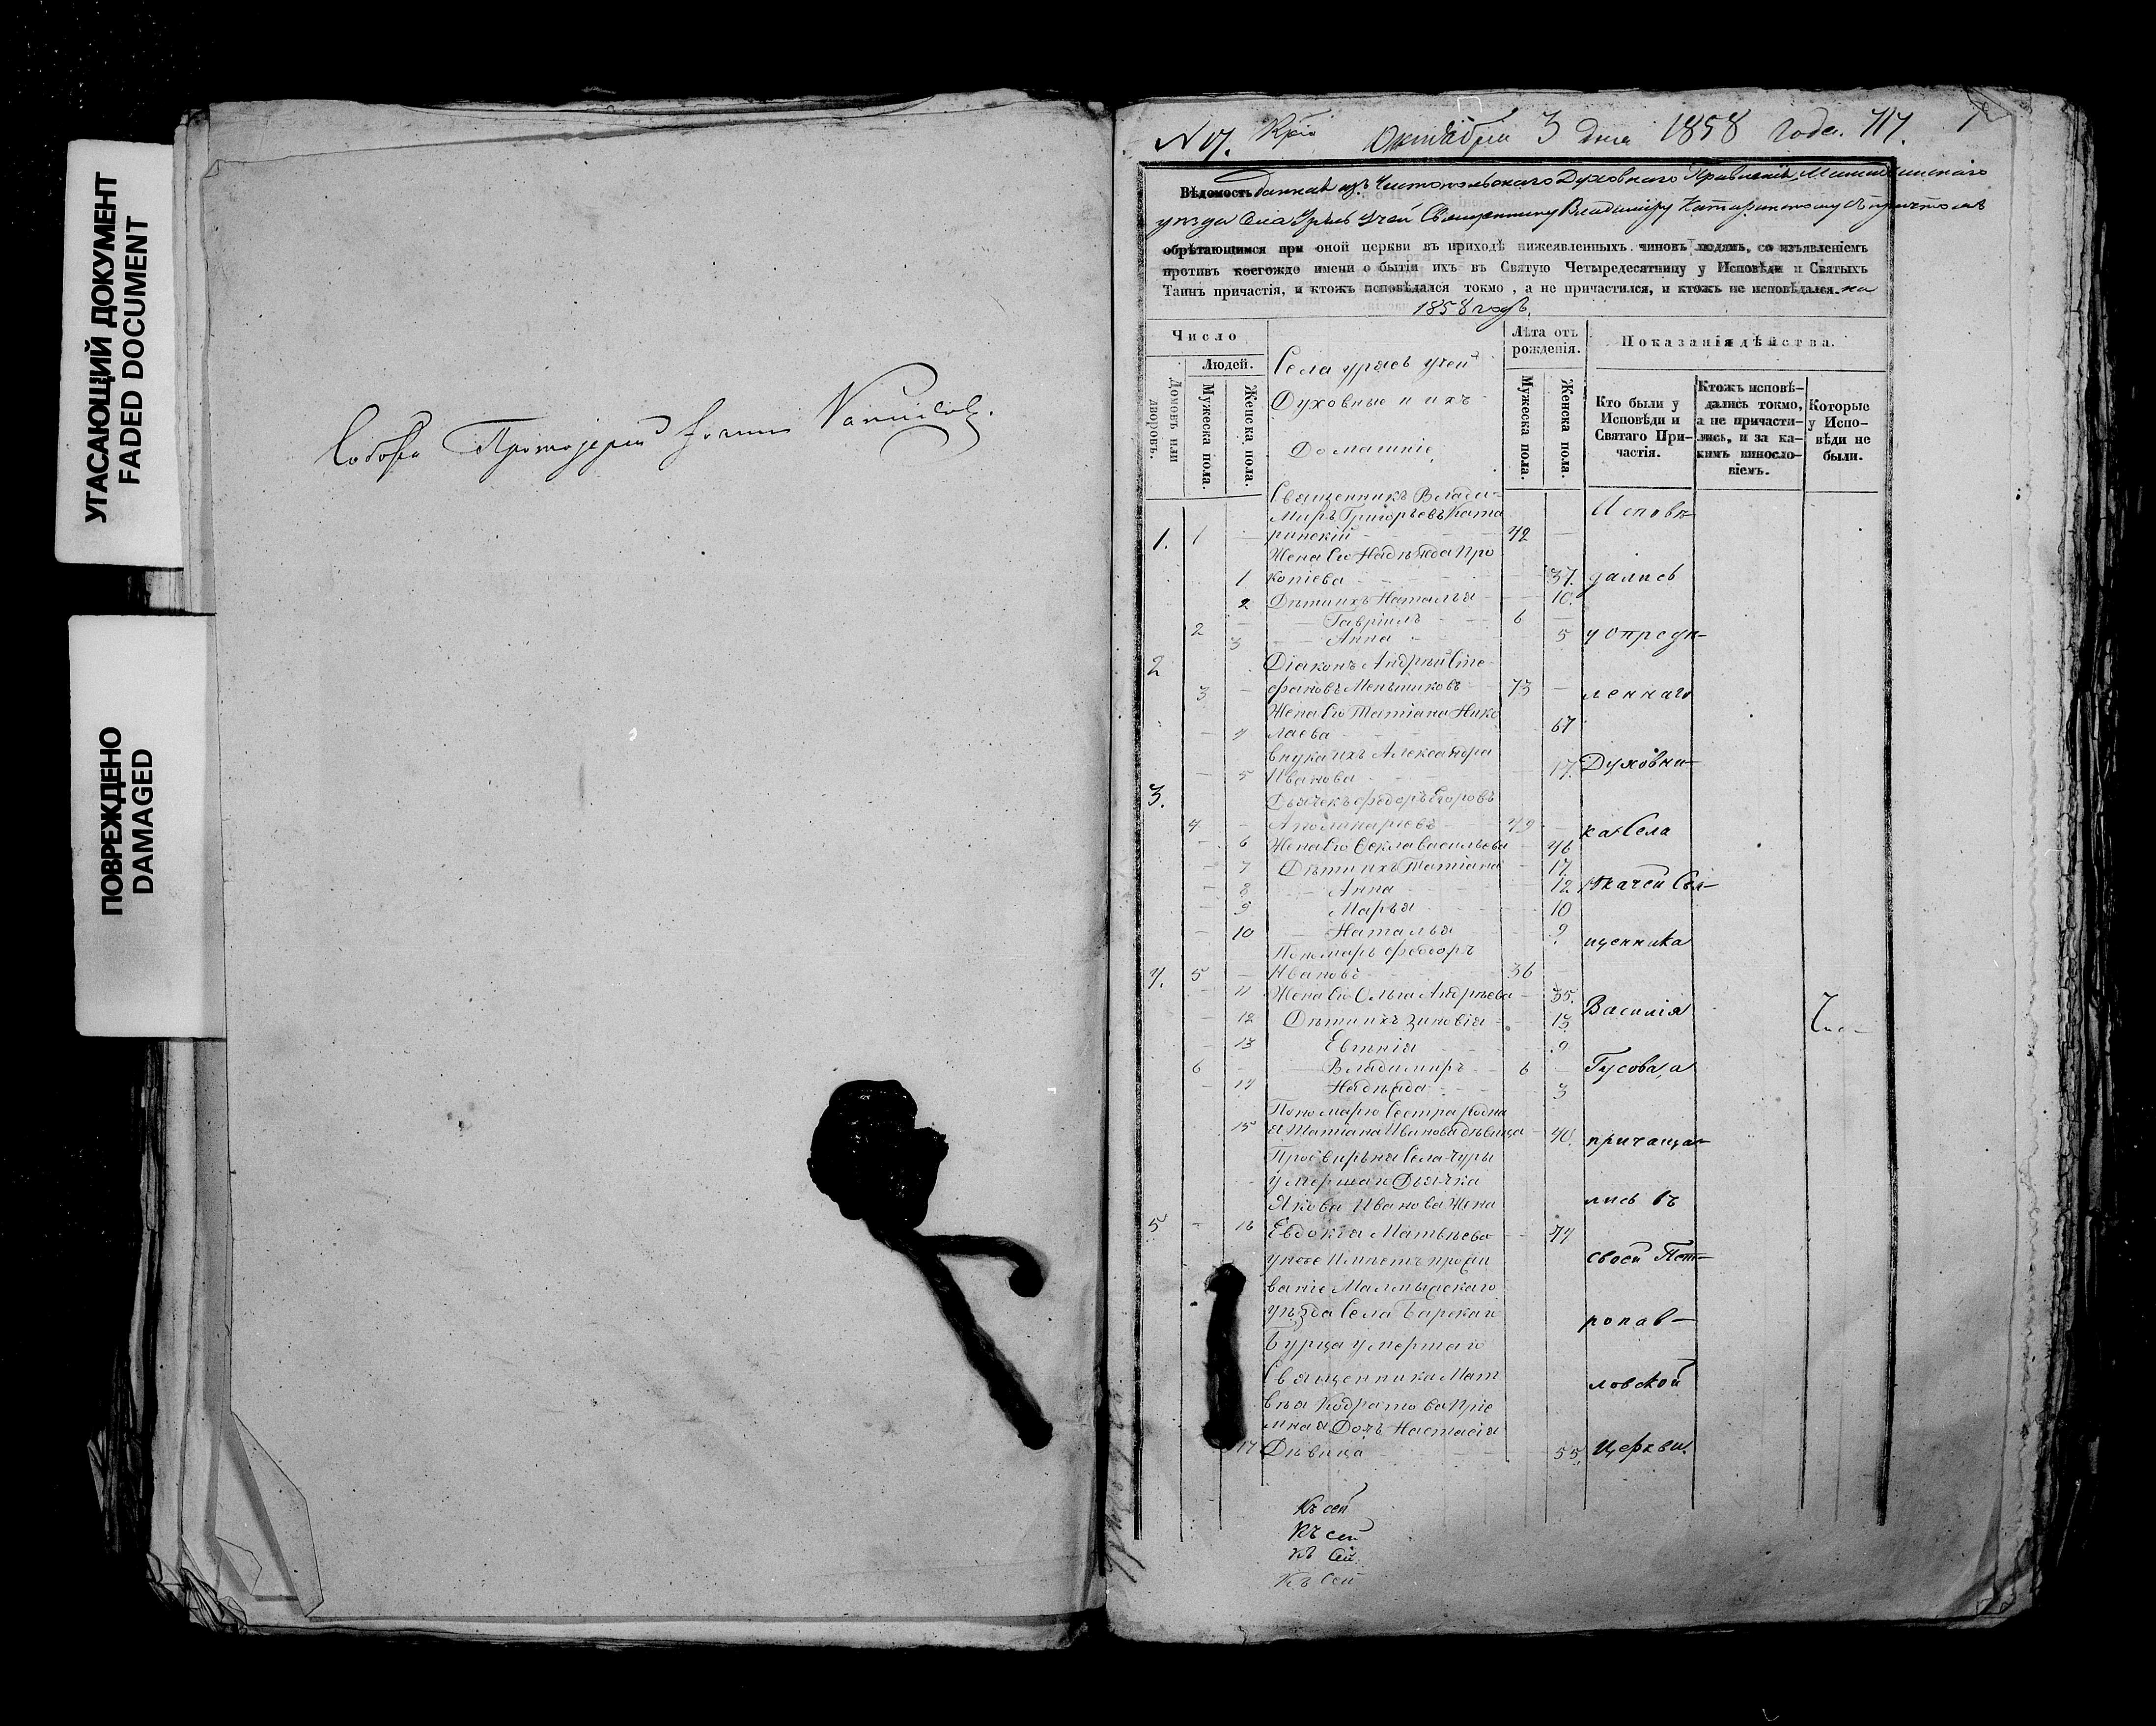 УГАСАЮЩИЙ ДОКУМЕНТ
FADED DOCUMENT
ПОВРЕЖДЕНО
DAMAGED
Протоіерей
Октября 3 дня 1858 года. 717.
Вѣдомость данная изъ Чистопольскаго Духовнаго Правленія
уѣзда Села Урясь Учей Священнику Владиміру Катаринскому съ причтомъ
обрѣтающимся при оной церкви въ приходѣ нижеявленныхъ чиновъ людямъ, со изъявленіемъ
противъ коегождо имени о бытіи ихъ въ Святую Четыредесятницу у Исповѣди и Святыхъ
Таинъ причастія, и ктожъ исповѣдался токмо, а не причастился, и ктожъ не исповѣдался. на
1858 годъ.
Число
Людей.
Домовъ или дворовъ.
Мужеска пола.
Женска пола.
Села Урясь Учей
Духовные и ихъ
Домашніе
Лѣта отъ
рожденія.
Мужеска пола.
Женска пола.
Показанія дѣйства.
Кто были у
Исповѣди и
Святаго При-
частія.
Ктожъ исповѣ-
дались токмо,
а не причасти-
лись, и за ка-
кимъ винословіемъ.
Которые
у Испо-
вѣди не
были.
Священникъ Влади-
миръ Григорьевъ Ката
1. 1 — ринскій 42 —
Исповѣ-
Жена Его Надѣжда Про
1 копіева 37. дались
2 Дѣти ихъ Наталья 10.
2 — Гавріилъ 6 —
3 Анна 5 у опредѣ-
2 Діаконъ Андрей Сте
3 — фановъ Меньшиковъ 73 — леннаго
Жена Его Татіана Нико
4 лаева 67
внука их Александра
5 Иванова 17. Духовни-
3. Дьячекъ Федоръ Егоровъ
4 — Аполинарьевъ 49 — ка Села
6 Жена Его Фекла Васильева 46
7 Дѣти ихъ Татіана 17
8 Анна 12 Ткачей Свя-
9 Марья 10
10 Наталья 9 щенника
Пономарь Феодоръ
4. 5 — Ивановъ 36 —
11 Жена Его Ольга Андрѣева 35. Василія
12 Дѣти ихъ Зиновія 13
13 Евгенія 9
6 — Владимиръ 6 — Гусова, а
14 Надѣжда 3
Пономарю Сестра Родна
15 я Татіана Иванова дѣвица 40. причаща-
Просвирьня Села Чуры
умершаго Дьячка
Якова Иванова Жена лись въ
5 — 16 Евдокія Матвѣева 74
у нее Имѣетъ прожи своей Пет-
ваніе Малмыжскаго
уѣзда Села Барскаго ропав-
умершаго
Священника Мат ловской
вѣя Кодратова Прiе
мная Дочь Настасія
17 Дѣвица 55. Церкви.
Къ сей
Къ сей
Къ Сей
Къ Сей